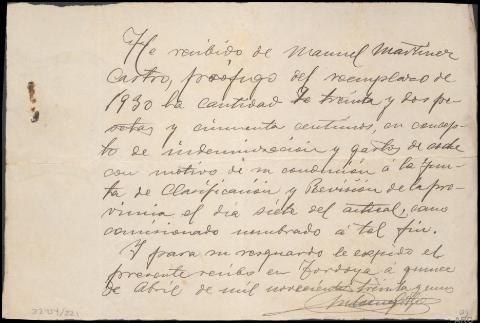 He recibido de Manuel Martínez
Castro, prófugo del reemplazo de
1930 la cantidad de treinta y dos pe-
setas y cincuenta centimos, en concep-
to de indemnización y gastos de coche
con motivo de su conducción á la Jun-
ta de Clasificación y Revisión de la pro-
vincia el día siete del actual, como
comisionado nombrado á tal fin.
Y para su resguardo le expido el
presente recibo en Tordoya á quince
de Abril de mil novecientos treinta y uno